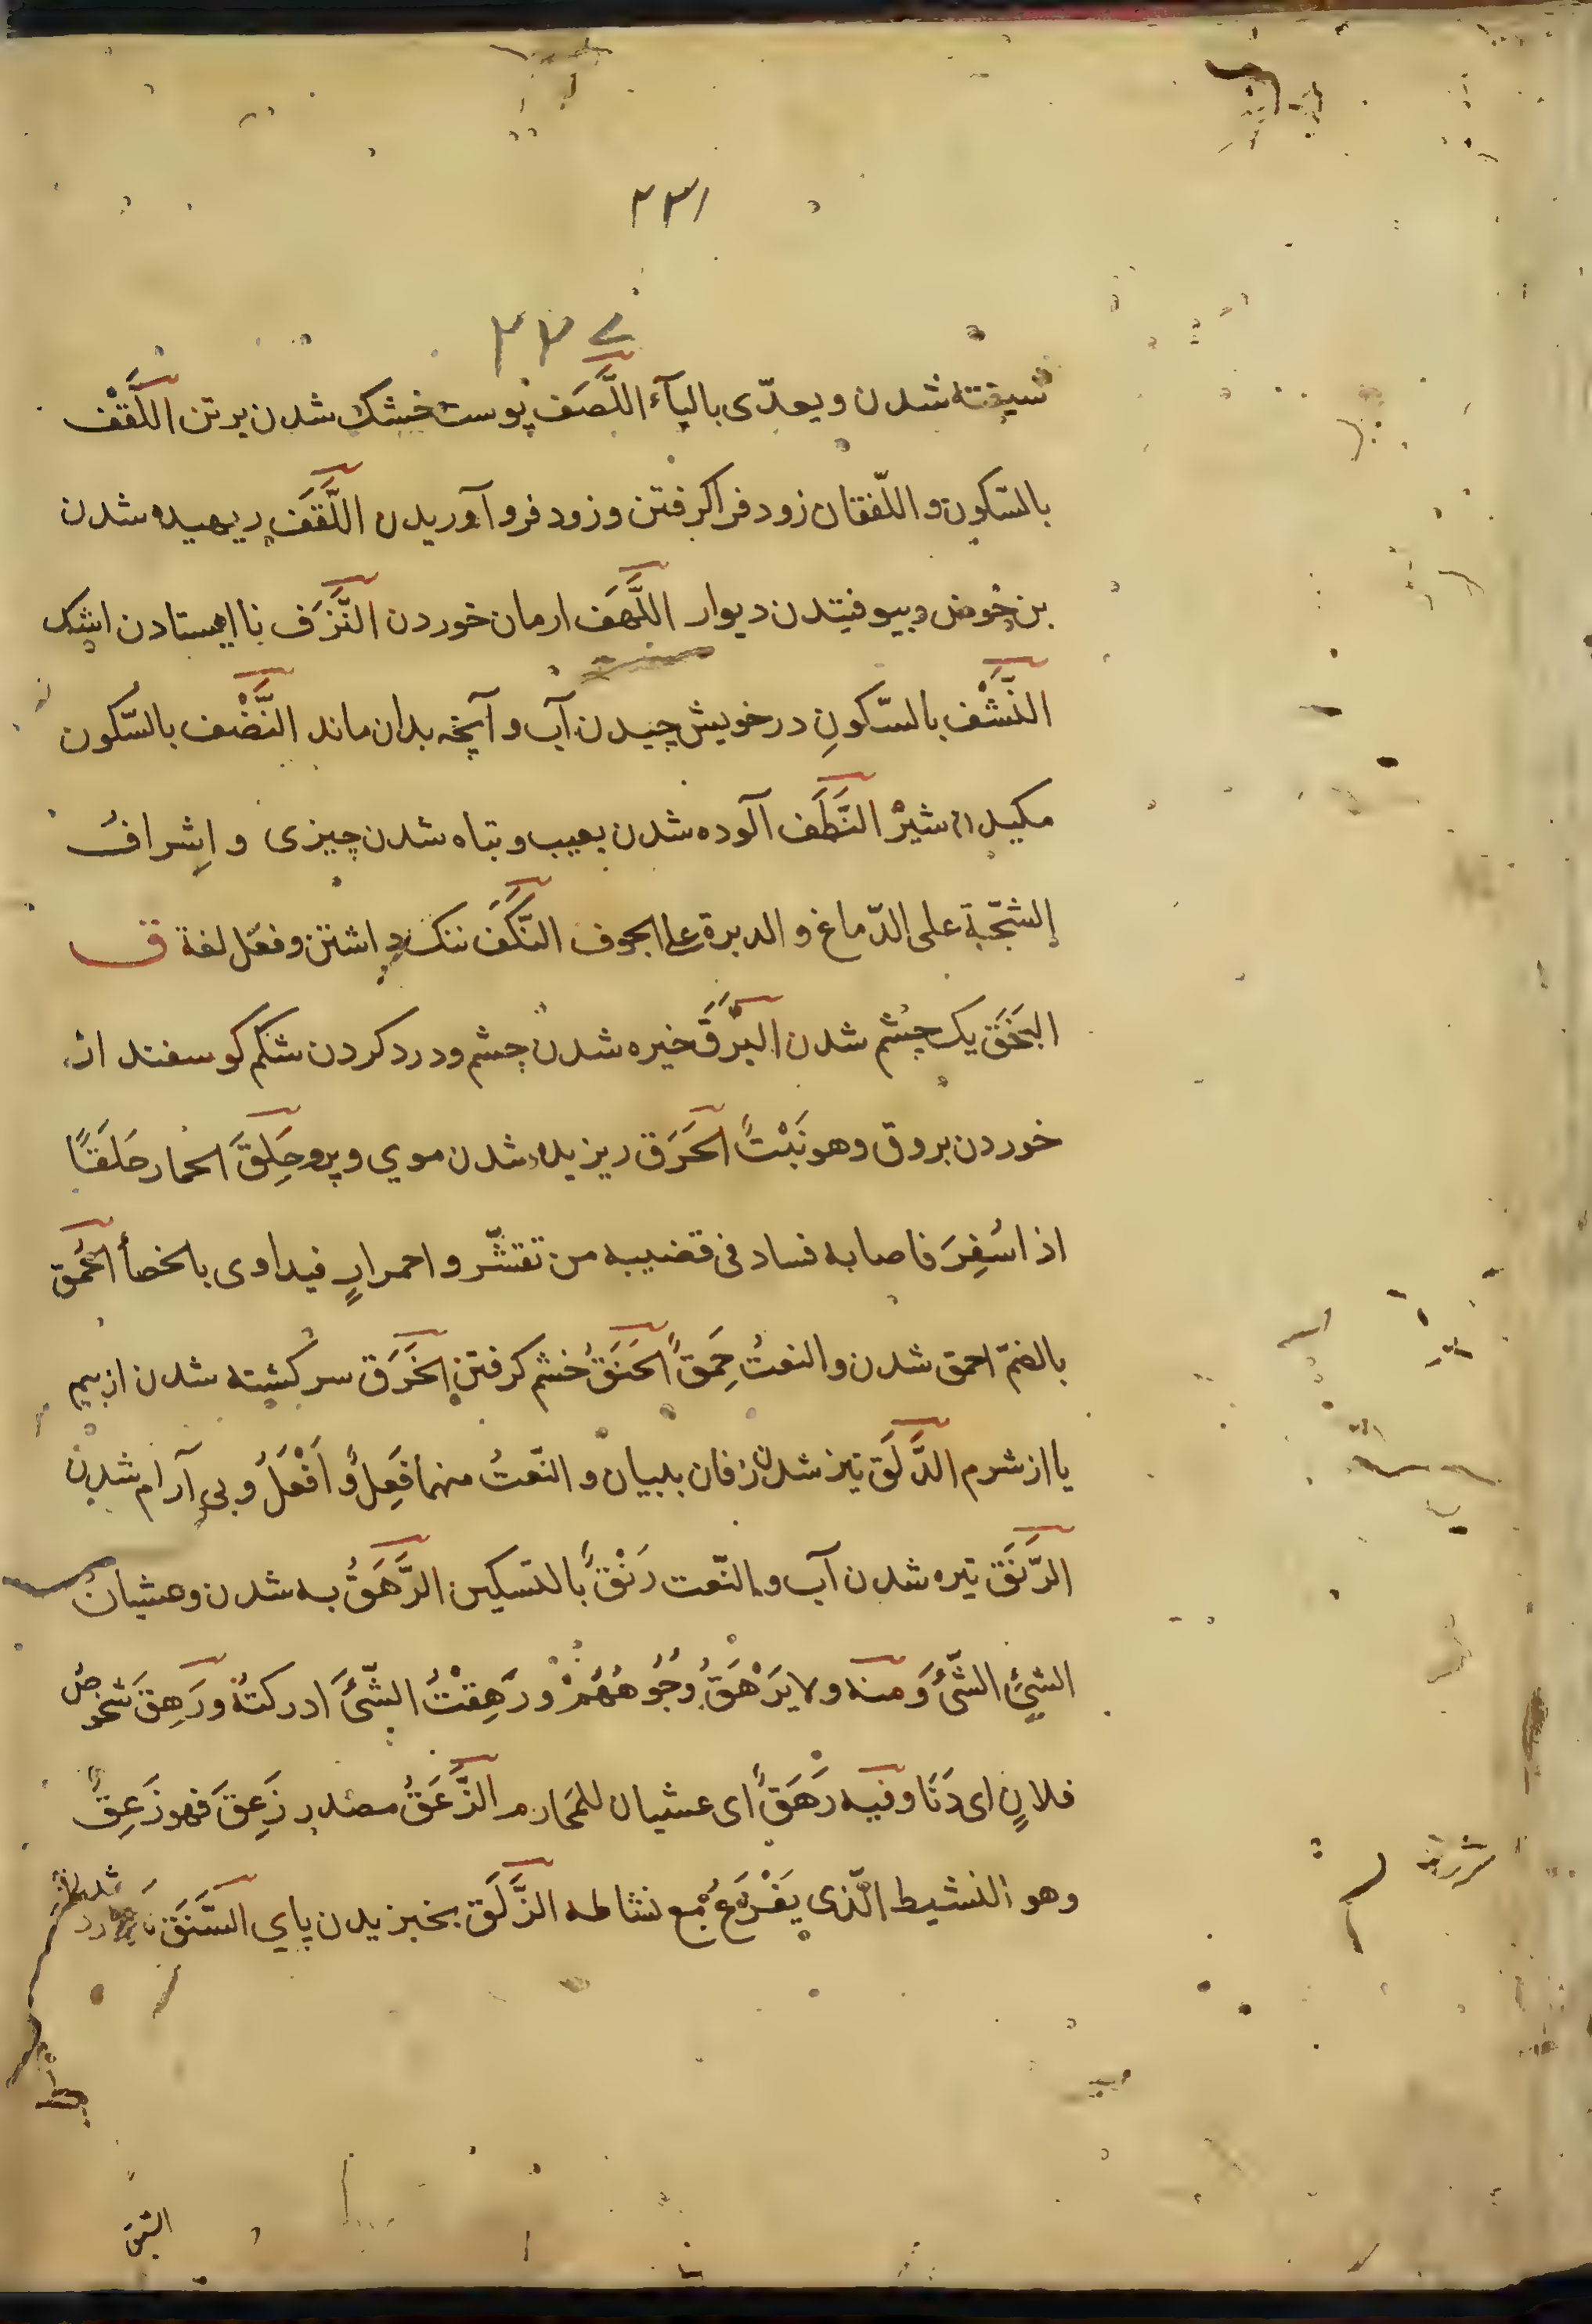 ٢٣١
٢٣٠
شیفته شدن و یعدّی بالباء اللَّصَف پوست خشک شدن بر تن اللَّقْف
بالسّکون و اللّقفان زود فرا کرفتن و زود فرو آوریدن اللَّقَف ریهیده شدن
بن حوض و بیوفتیدن دیوار اللَّهَف ارمان خوردن النَّزَف نا ایستادن اشک
النَّشْف بالسّکونِ در خویش چیدن آب و آنچه بدان ماند النَّضْف بالسّکون
مکیدن شیرْ النَّطَف آلوده شدن بعیب و تباه شدن چیزی و اِشراف
الشجّة علی الدّماغ و الدبرة علی الجوف النَّکَف ننک داشتن و فعَل لغة ق
البَخَق یک چشم شدن البَرَق خیره شدن چشم و درد کردن شکم کوسفند از
خوردن بروق و هو نَبْتٌ الحَرَق ریزیده شدن موي و پر و حَلِقَ الحمار حَلَقًا
اذا سُفِرَ فاصابه فساد فی قضیبه من تقشّر و احمرارٍ فیداوی بالخصأ الحُمق
بالضمّ احمق شدن و النعتُ حَمِقٌ الحَنَقُ خشم کرفتن الخَرَق سرکشته شدن از بیم
یا از شرم الدَّلَق تیز شدن زفان ببیان و النّعتُ منهما فَعِلٌ و اَفْعَلُ و بی آرام شدن
الرَّنَق تیره شدن آب و النّعت رَنْقٌ بالتسکین الرَّهَقُ به شدن و عشیان
الشيئِ الشّیَٔ و منه و لا یَرْهَقُ وُجُوهَهُمْ و رَهِقْتُ الشّیَٔ ادرکتهُ و رَهِقَ شخوصُ
فلانٍ ای دَنَا و فیه رَهَقٌ ای عشیان للمحارم الزَّعَقُ مصدر زَعِقَ فهو زَعِقٌ
و هو النشیط الّذی یَفْزَعُ مع نشاطه الزَّلَق بخیزیدن پاي السَّنَق